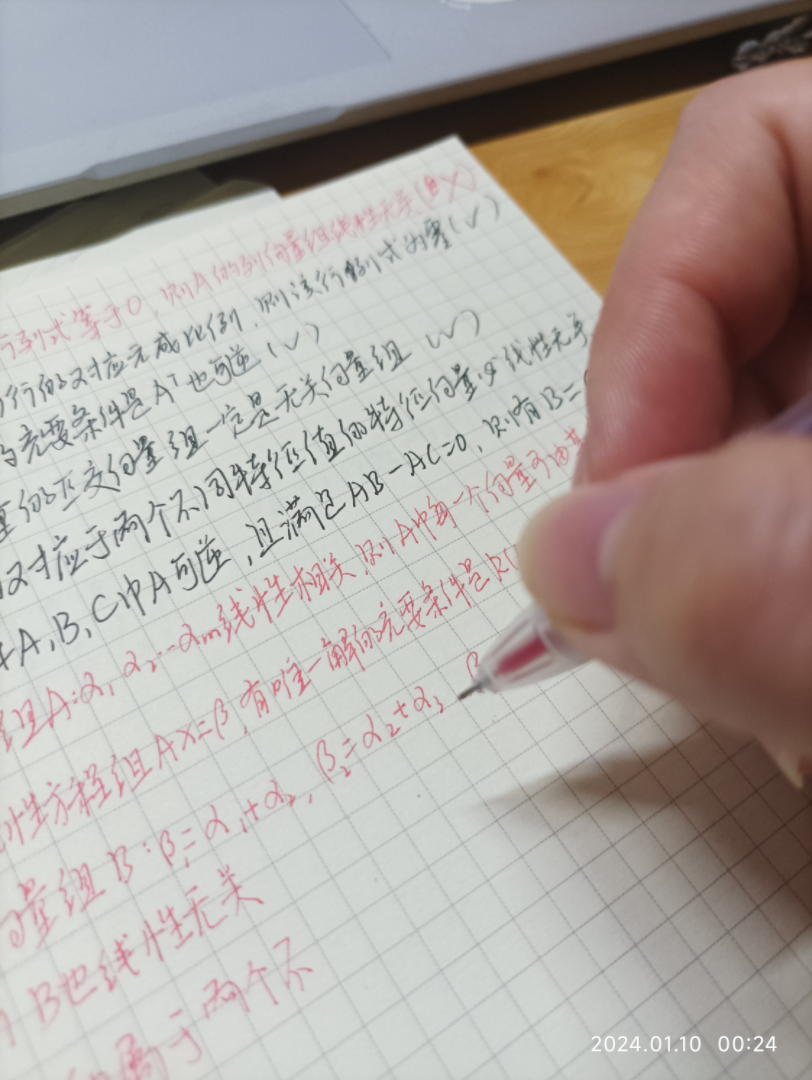 行列式等于0,则A的列向量组线性无关(X)
行的对应元成比例,则该行列式为零(✓)
充要条件是Aᵀ也可逆(✓)
的正交向量组一定是无关向量组(✓)
对应于两个不同特征值的特征向量必线性无关
A,B,C中A可逆,且满足AB-AC=0,则有B=
组A:α₁,α₂…αₘ线性相关,则A中每一个向量可由
性方程组AX=β,有唯一解的充要条件是R(
向量组B:β₁=α₁+α₂,β₂=α₂+α₃ β
B也线性无关
属于两个不
2024.01.10 00:24